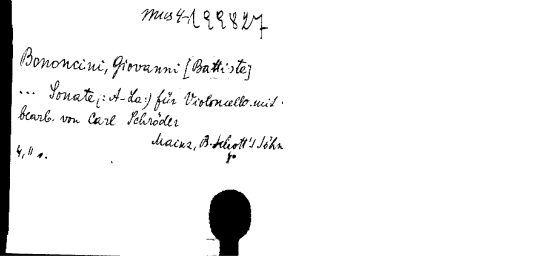 Mus 4-199827
Bononcini, Giovanni [Battiste]
... Sonate, (:A-La:) für Violoncello mit
bearb. von Carl Schröder
Mainz, B. Schott's Söhn
4, 11 s.